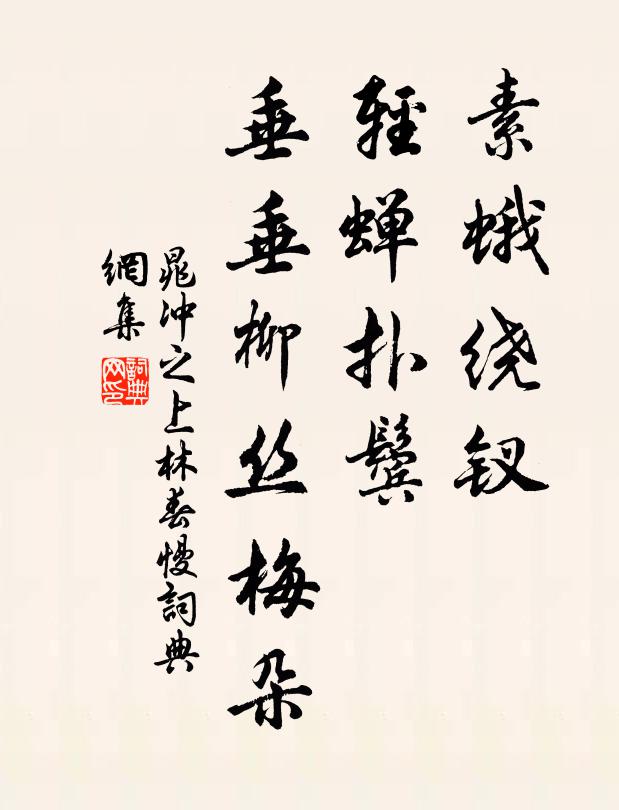 素蛾绕钗
輕蝉扑鬓
垂垂柳丝梅朵
晁冲之上林春慢詞典
網集
詞典网印